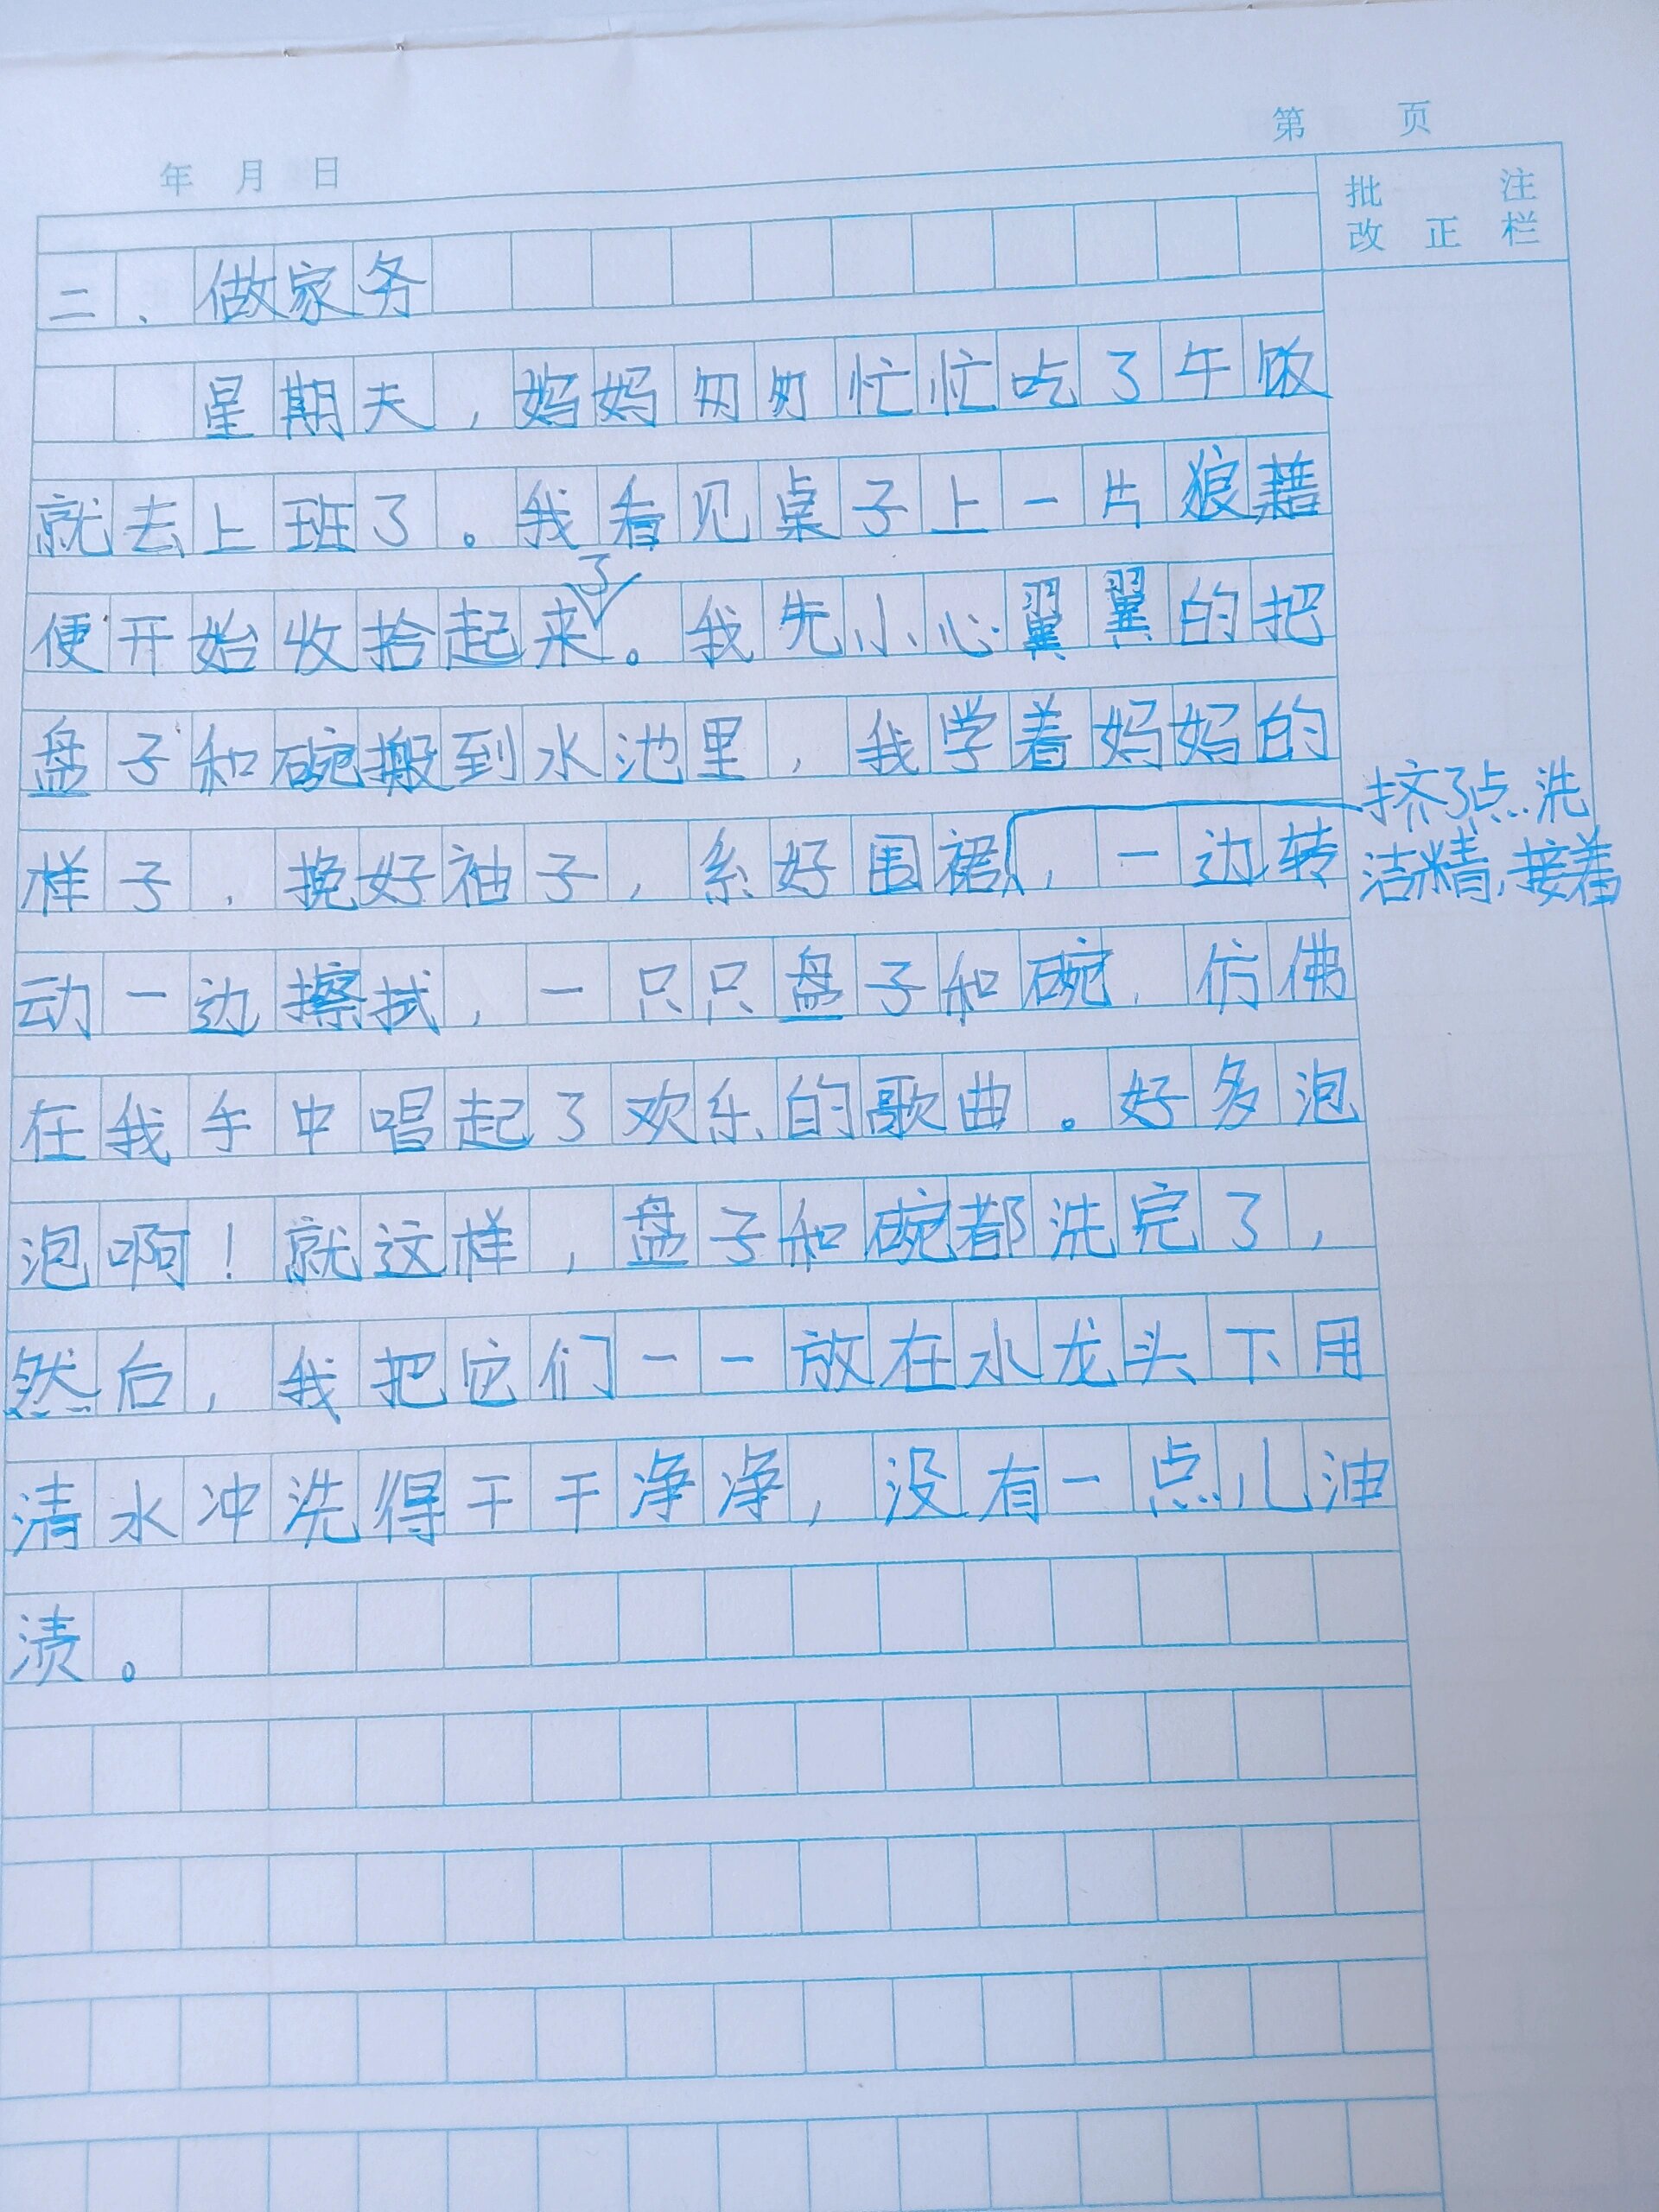 第 页
年 月 日
批 注
改 正 栏
二、做家务
星期天,妈妈匆匆忙忙吃了午饭
就去上班了。我看见桌子上一片狼藉
了
便开始收拾起来。我先小心翼翼的把
盘子和碗搬到水池里,我学着妈妈的
样子,挽好袖子,系好围裙,一边转
挤了点洗
洁精,接着
动一边擦拭,一只只盘子和碗,仿佛
在我手中唱起了欢乐的歌曲。好多泡
泡啊!就这样,盘子和碗都洗完了,
然后,我把它们一一放在水龙头下用
清水冲洗得干干净净,没有一点儿油
渍。